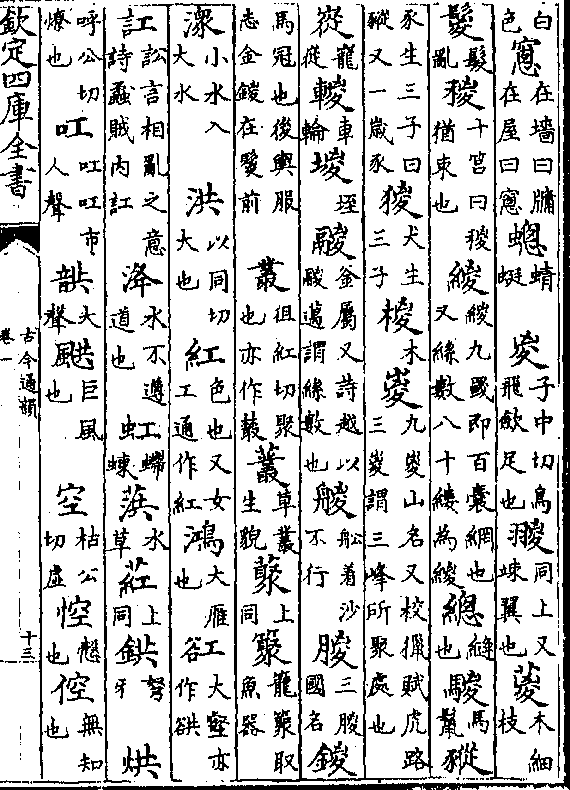 白色窻在墻曰牖在屋曰窻蟌蜻蜓　㚇子中切鳥飛歛足也䎫同上又竦翼也葼木細枝
鬉髮亂稯十筥曰稯猶束也緵緵九罭即百囊網也又絲數八十縷為緵緫縫也騣馬鬣豵
豕生三子曰豵又一嵗豕猣犬生三子椶木嵏九嵏山名又校獵賦虎路三嵏謂三峰所聚處也
嵸巃嵸車輪堫埵鬷釜屬又詩越以鬷邁謂絲數也艐船着沙不行朡三朡國名鍐
馬冠也後輿服志金鍐在髦前　叢徂紅切聚也亦作藂草叢生貌上同籠取魚器
潨小水入大水　洪以同切大也紅色也又女工通作紅鴻大雁也大壑亦作谼
訌訟言相亂之意詩蟊賊内訌洚水不遵道也虹螮蝀葓水草葒上同鉷弩牙烘
呼公切燎也叿叿叿市人聲大聲巨風也　空枯公切虛悾慤也倥無知也
欽定四庫全書
古今通韻
卷一
十三